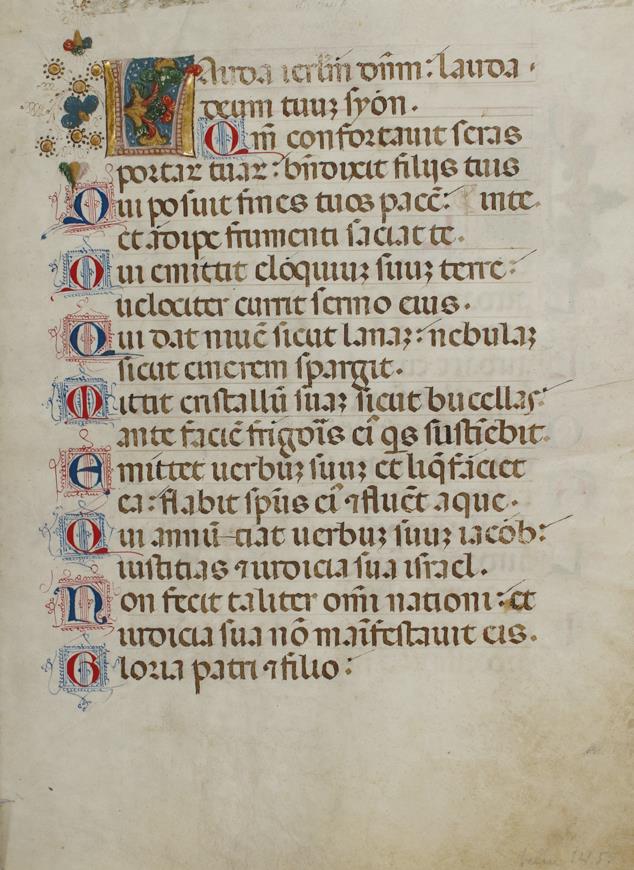 Lauda ierlm dnm: lauda.
deum tuuz syon.
Qm confortauit seras
portaz tuaz: bndixit filijs tuis
Qui posuit fines tuos pacē: inte.
et adipe frumenti saciat te.
Qui emittit eloquiuz suuz terre:
uelociter currit sermo eius.
Qui dat niuē sicut lanaz: nebulaz
sicut cinerem spargit.
Mittit cristallū suaz sicut bucellas:
ante faciē frigoris ei qs sustiebit.
Emittet uerbuz suuz et liqfaciet
ea: flabit spūs ei ⁊ fluēt aque.
Qui annūciat uerbuz suuz iacob:
iustitias ⁊ iudicia sua israel.
Non fecit taliter omi nationi: et
iudicia sua nō maīfestauit eis.
Gloria patri ⁊ filio: